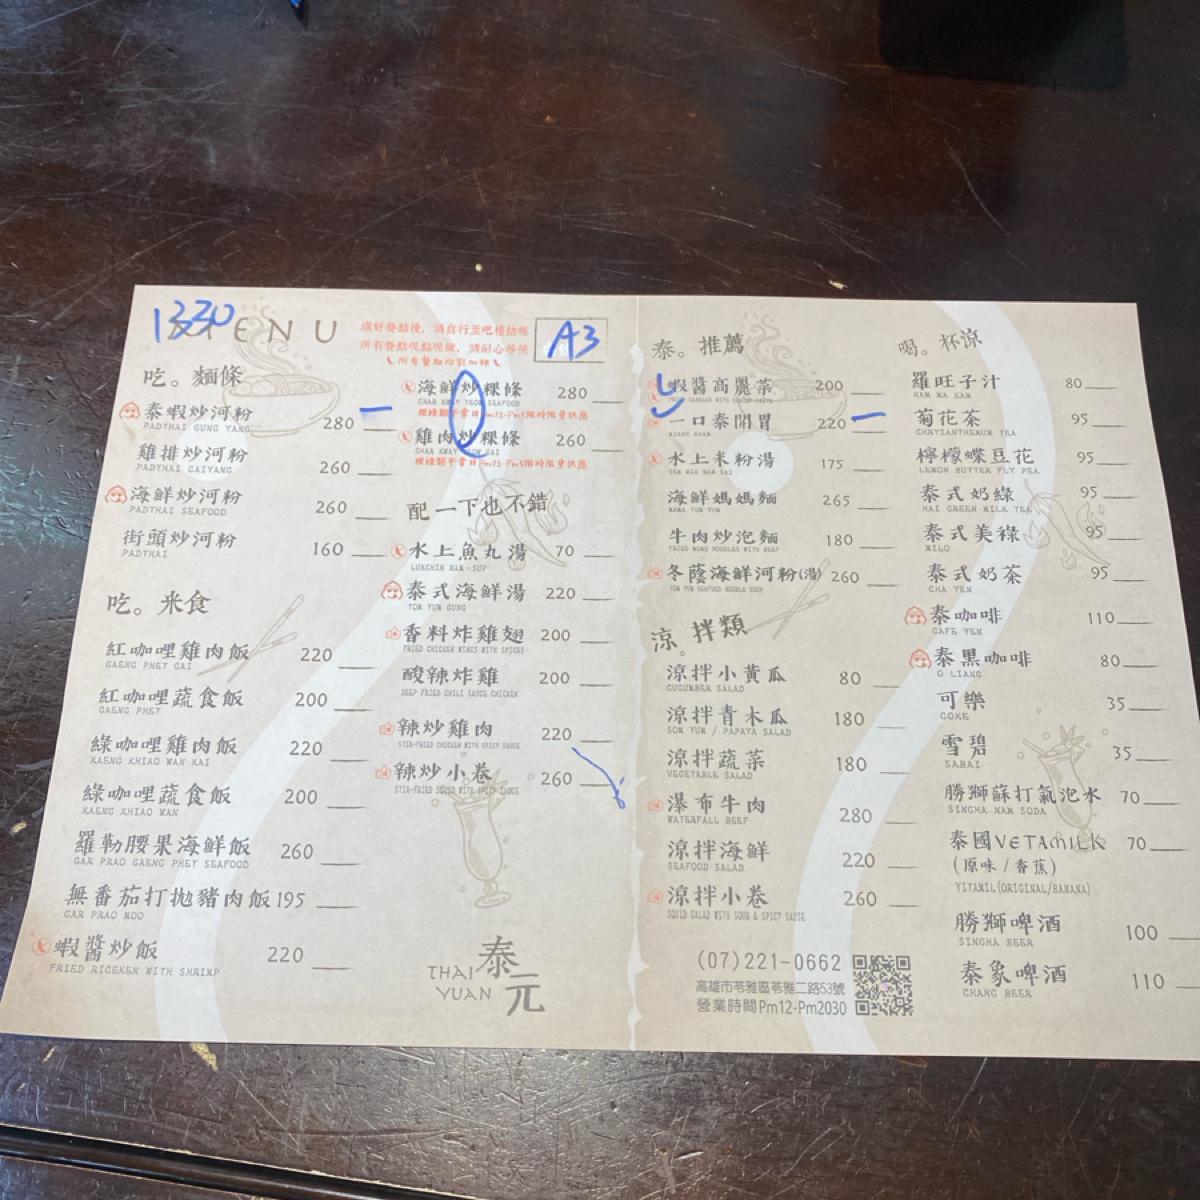 1330
MENU
填好餐點後，請自行至吧檯結帳
所有餐點現點現做，請耐心等候
A3
吃。麵條
泰蝦炒河粉 280
PADTHAI GUNG YANG
雞排炒河粉 260
PADTHAI GAIYANG
海鮮炒河粉 260
PADTHAI SEAFOOD
街頭炒河粉 160
PADTHAI
吃。米食
紅咖哩雞肉飯 220
GAENG PHET GAI
紅咖哩蔬食飯 200
GAENG PHET
綠咖哩雞肉飯 220
KAENG KHIAO WAN KAI
綠咖哩蔬食飯 200
KAENG KHIAO WAN
羅勒腰果海鮮飯 260
GAR PRAO GAENG PHET SEAFOOD
無番茄打拋豬肉飯 195
GAR PRAO MOO
蝦醬炒飯 220
FRIED RICEKEN WITH SHRIMP
海鮮炒粿條 280
CHAR KWAY TEOW SEAFOOD
雞肉炒粿條 260
配一下也不錯
水上魚丸湯 70
LUKCHIN NAM-SUP
泰式海鮮湯 220
TOM YUM GUNG
香料炸雞翅 200
FRIED CHICKEN WINGS WITH SPICES
酸辣炸雞 200
DEEP FRIED CHILI SAUCE CHICKEN
辣炒雞肉 220
STIR-FRIED CHICKEN WITH SPICY SAUCE
辣炒小卷 260
STIR-FRIED SQUID WITH SPICY SAUCE
THAI YUAN
泰元
泰。推薦
蝦醬高麗菜 200
一口泰開胃 220
MIANG KHAM
水上米粉湯 175
海鮮媽媽麵 265
MAMA TOM YUM
牛肉炒泡麵 180
FRIED MOMO NOODLES WITH BEEF
冬蔭海鮮河粉(湯) 260
TOM YUM SEAFOOD NOODLE SOUP
涼。拌類
涼拌小黃瓜 80
CUCUMBER SALAD
涼拌青木瓜 180
SOM TUM / PAPAYA SALAD
涼拌蔬菜 180
VEGETABLE SALAD
瀑布牛肉 280
WATERFALL BEEF
涼拌海鮮 220
SEAFOOD SALAD
涼拌小卷 260
SQUID SALAD WITH SOUR & SPICY SAUCE
(07)221-0662
高雄市苓雅區苓雅二路53號
營業時間Pm12-Pm2030
喝。杯涼
羅旺子汁 80
菊花茶 95
CHRYSANTHEMUM TEA
檸檬蝶豆花 95
LEMON BUTTER FLY PEA
泰式奶綠 95
HAI GREEN MILK TEA
泰式美祿 95
MILO
泰式奶茶 95
CHA YEN
泰咖啡 110
CAFE YEN
泰黑咖啡 80
O LIANG
可樂 35
COKE
雪碧 35
SABAI
勝獅蘇打氣泡水 70
SINGHA NAM SODA
泰國VETAMILK 70
(原味/香蕉)
VITAMIL(ORIGINAL/BANANA)
勝獅啤酒 100
SINGHA BEER
泰象啤酒 110
CHANG BEER